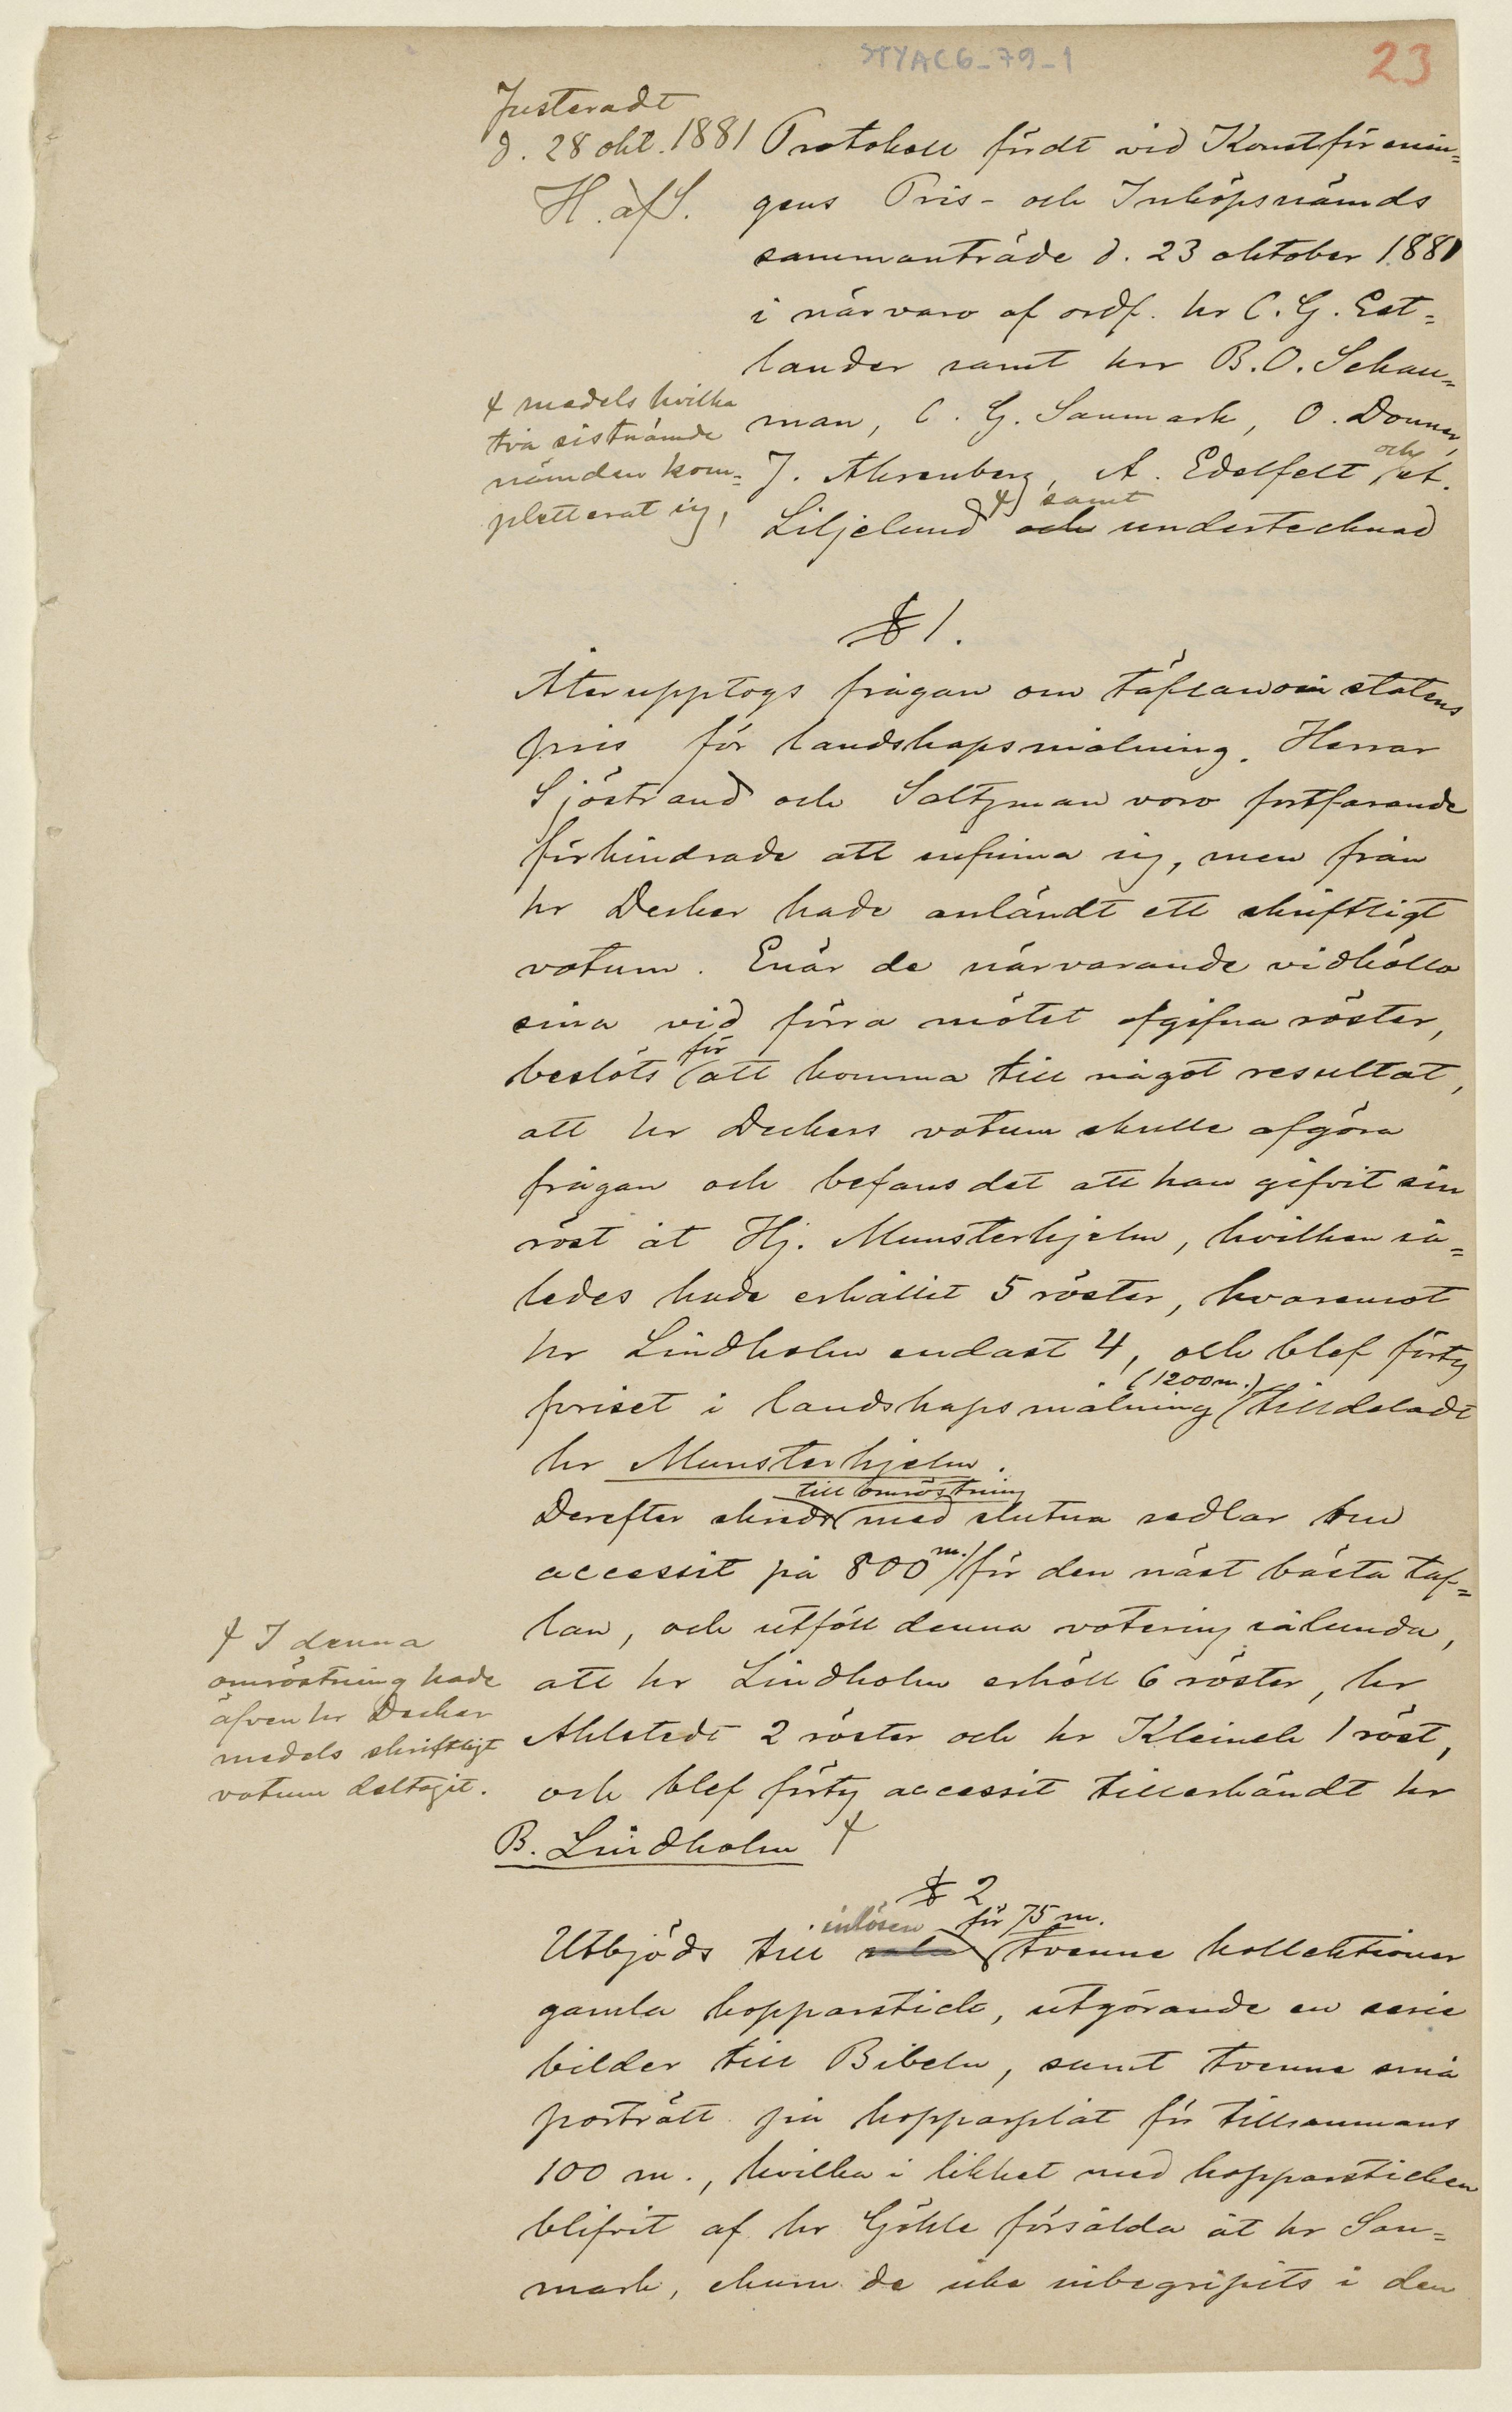 STYAC6-79-1
23
Justeradt
d. 28 okt. 1881
H. af S.
Protokoll fördt vid Konstförenin=
gens Pris- och Inköpsnämds
sammanträde d. 23 oktober 1881
i närvaro af ordf. hr C. G. Est=
lander samt hrr B. O. Schau=
man, C. G. Sanmark, O. Donner,
J. Ahrenberg, A. Edelfelt och A.
Liljelund ɟ) samt och undertecknad
ɟ medels hvilka
två sistnämde
nämden kom=
pletterat sig,
§ 1.
Återupptogs frågan om täflan om statens
pris för landskapsmålning. Herrar
Sjöstrand och Saltzman voro fortfarande
förhindrade att infinna sig, men från
hr Decker hade anländt ett skriftligt
votum. Enär de närvarande vidhöllo
sina vid förra mötet afgifna röster,
beslöts för att komma till något resultat,
att hr Deckers votum skulle afgöra
frågan och befans det att han gifvit sin
röst åt Hj. Munsterhjelm, hvilken så=
ledes hade erhållit 5 röster, hvaremot
hr Lindholm endast 4, och blef förty
priset i landskapsmålning (1200 m.) tilldeladt
hr Munsterhjelm.
Derefter skreds till omröstning med slutna sedlar om
accessit på 800 m. för den näst bästa taf=
lan, och utföll denna votering sålunda,
att hr Lindholm erhöll 6 röster, hr
Ahlstedt 2 röster och hr Kleineh 1 röst,
och blef förty accessit tillerkändt hr
B. Lindholm ɟ
ɟ I denna
omröstning hade
äfven hr Decker
medels skriftligt
votum deltagit.
§ 2
Utbjöds till inlösen för 75 m. tvenne kollektioner
gamla kopparstick, utgörande en serie
bilder till Bibeln, samt tvenne små
porträtt på kopparplåt för tillsammans
100 m., hvilka i likhet med kopparsticken
blifvit af hr Göhle försålda åt hr San=
mark, ehuru de icke inbegripits i den